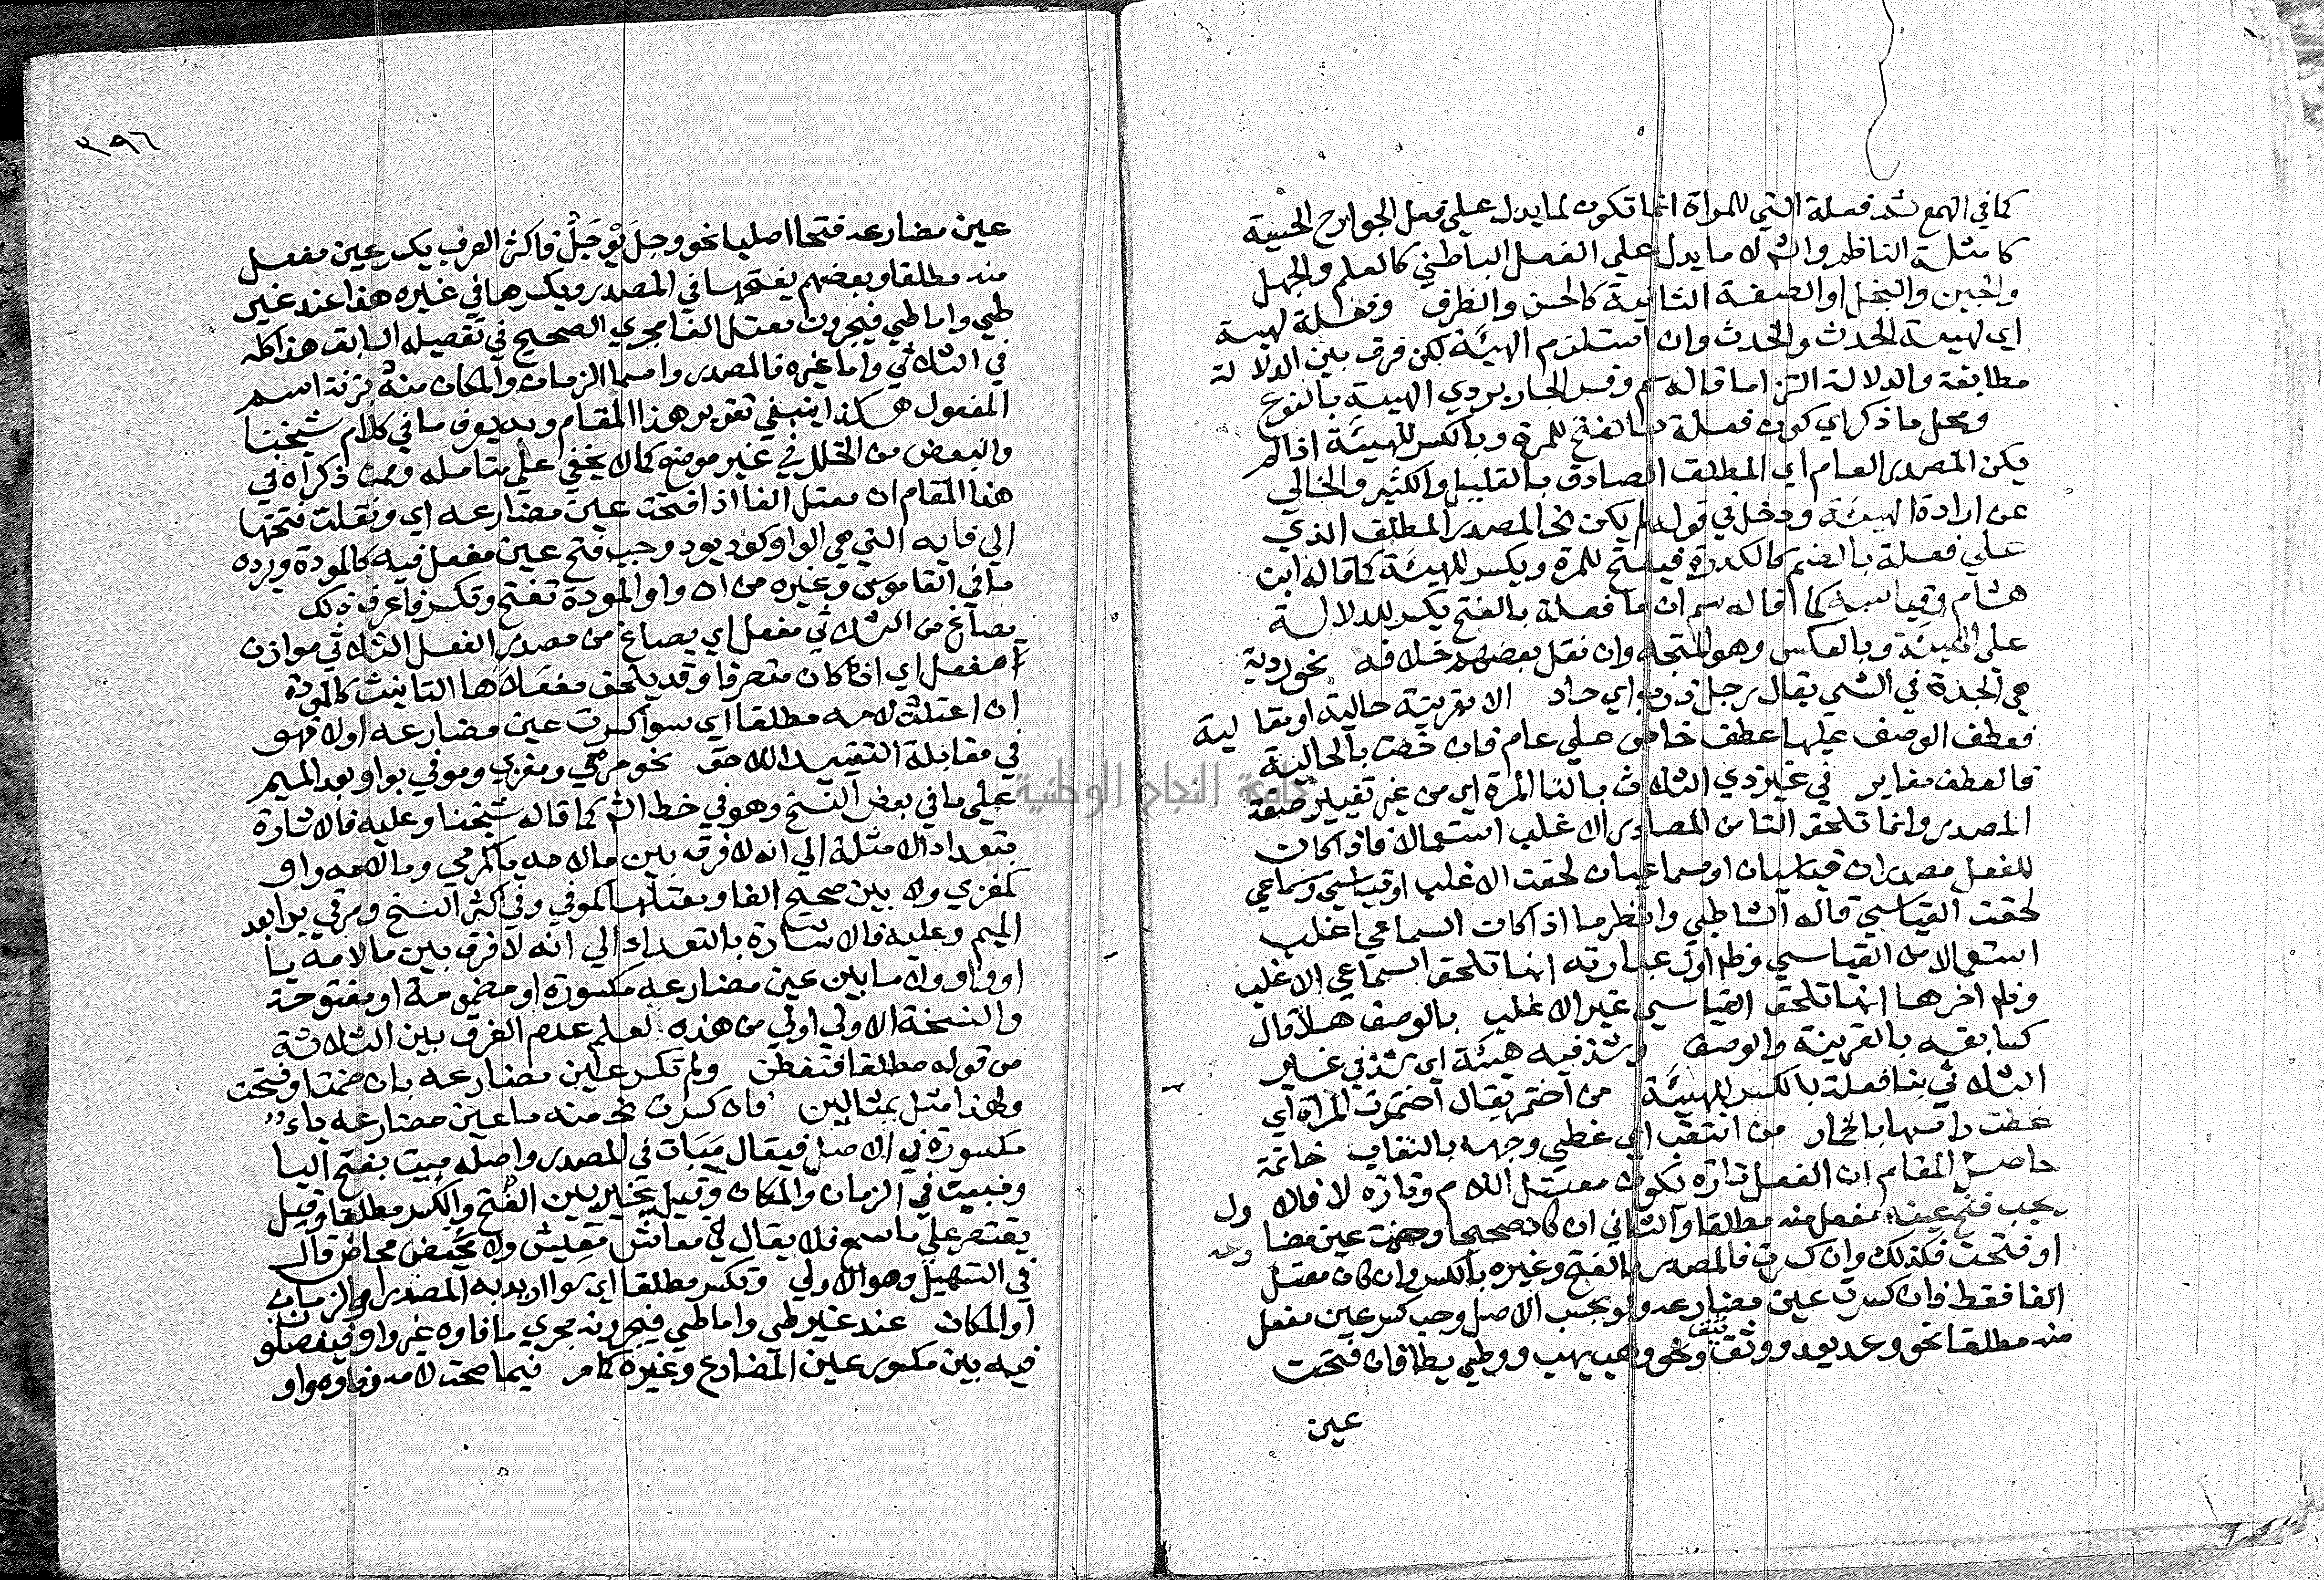 كما في الهمع ثم فعلة التي للمرة انما تكون لما يدل علي فعل الجوارح الحسية
كامثلة الناظم والش لا ما يدل علي الفعل الباطني كالعلم والجهل
والجبن والبخل او الصفة الثابتة كالحسن والظرف وفعلة لهيئة
اي لهيئة الحدث والحدث وان استلزم الهيئة لكن فرق بين الدلالة
مطابقة والدلالة التزاما قاله سم وفسر الجاربردي الهيئة بالنوع
ومحل ما ذكر اي كون فعلة بالفتح للمرة وبالكسر للهيئة اذا لم
يكن المصدر العام اي المطلق الصادق بالقليل والكثير والخالي
عن ارادة الهيئة ودخل في قوله لم يكن الخ المصدر المطلق الذي
علي فعلة بالضم كالكدرة فيفتح للمرة ويكسر للهيئة كما قاله ابن
هشام وقياسه كما قاله سم ان ما فعلة بالفتح يكسر للدلالة
علي الهيئة وبالعكس وهو المتجه وان نقل بعضهم خلافه نحو دربة
هي الحدة في الشي يقال رجل ذرب اي حاد الا بقرينة حالية او مقالية
فعطف الوصف عليها عطف خاص علي عام فان خصت بالحالية
فالعطف مغاير في غير ذي الثلاث بالتا المرة اي من غير تغيير صيغة
المصدر وانما تلحق التا من المصادر الاغلب استعمالا فاذا كان
للفعل مصدران قياسيان او سماعيان لحقت الاغلب او قياسي وسماعي
لحقت القياسي قاله الشاطبي وانظر ما اذا كان السماعي اغلب
استعمالا من القياسي وظ اول عبارته انها تلحق السماعي الاغلب
وظ اخرها انها تلحق القياسي غير الاغلب بالوصف هلا قال
كسابقه بالقرينة والوصف وشذ فيه هيئة اي شذ في غير
الثلاثي بنا فعلة بالكسر للهيئة من اختمر يقال اختمرت المراة اي
غطت راسها بالخمار من انتقب اي غطي وجهه بالنقاب خاتمة
حاصل المقام ان الفعل تارة تكون معتل اللام وتارة لا فالاول
يجب فتح عين مفعل منه مطلقا والثاني ان كان صحيحا وضمت عين مضارعه
او فتحت فكذلك وان كسرت فالمصدر بالفتح وغيره بالكسر وان كان معتل
الفا فقط فان كسرت عين مضارعه ولو بحسب الاصل وجب كسر عين مفعل
منه مطلقا نحو وعد يعد ووثق يثق ونحو وهب يهب ووطي يطا فان فتحت
عين
٣٩٦
عين مضارعه فتحا اصليا نحو وجل يَوْجَلُ فاكثر العرب يكسر عين مفعل
منه مطلقا وبعضهم يفتحها في المصدر ويكسرها في غيره هذا عند غير
طيي واما طيي فيجرون معتل الفا مجري الصحيح في تفصيله السابق هذا كله
في الثلاثي واما غيره فالمصدر واسما الزمان والمكان منه بزنة اسم
المفعول هكذا ينبغي تقرير هذا المقام وبه يعرف ما في كلام شيخنا
والبعض من الخلل في غير موضع كما لا يخفي علي متامله ومما ذكراه في
هذا المقام ان معتل الفا اذا فتحت عين مضارعه اي ونقلت فتحتها
الي فايه التي هي الواو كود يود وجب فتح عين مفعل فيه كالمودة ويرده
ما في القاموس وغيره من ان واو المودة تفتح وتكسر فاعرف ذلك
يصاغ من الثلاثي مفعل اي يصاغ من مصدر الفعل الثلاثي موازن
مفعل اي اذا كان متصرفا وقد يلحق مفعلا ها التانيث كالمودة
ان اعتلت لامه مطلقا اي سوا كسرت عين مضارعه اولا فهو
في مقابلة التقييد اللاحق نحو مرمي ومغزي وموفي بواو بعد الميم
علي ما في بعض النسخ وهو في خط الش كما قاله شيخنا وعليه فالاشارة
بتعداد الامثلة الي انه لا فرق بين ما لامه يا كمرمي وما لامه واو
كمغزي ولا بين صحيح الفا ومعتلها كموفي وفي اكثر النسخ ومرقي برا بعد
الميم وعليه فالاشارة بالتعداد الي انه لا فرق بين ما لامه يا
او واو ولا ما بين عين مضارعه مكسورة او مضمومة او مفتوحة
والنسخة الاولي اولي من هذه لعلم عدم الفرق بين الثلاثة
من قوله مطلقا فتفطن ولم تكسر عين مضارعه بان ضمت او فتحت
ولهذا مثل بمثالين فان كسرت الخ منه ما عين مضارعه ياء
مكسورة في الاصل فيقال مَبَات في المصدر واصله مبيت بفتح اليا
ومبيت في الزمان والمكان وقيل يخير بين الفتح والكسر مطلقا وقيل
يقتصر علي ما سمع فلا يقال في معاش معيش ولا في محيض محاض قال
في التسهيل وهو الاولي وتكسر مطلقا اي سوا اريد به المصدر او الزمان
او المكان عند غير طي واما طيي فيجرونه مجري ما فاوه غير واو فيفصلو
فيه بين مكسور عين المضارع وغيره كما مر فيما صحت لامه وفاوه واو
جامعة النجاح الوطنية